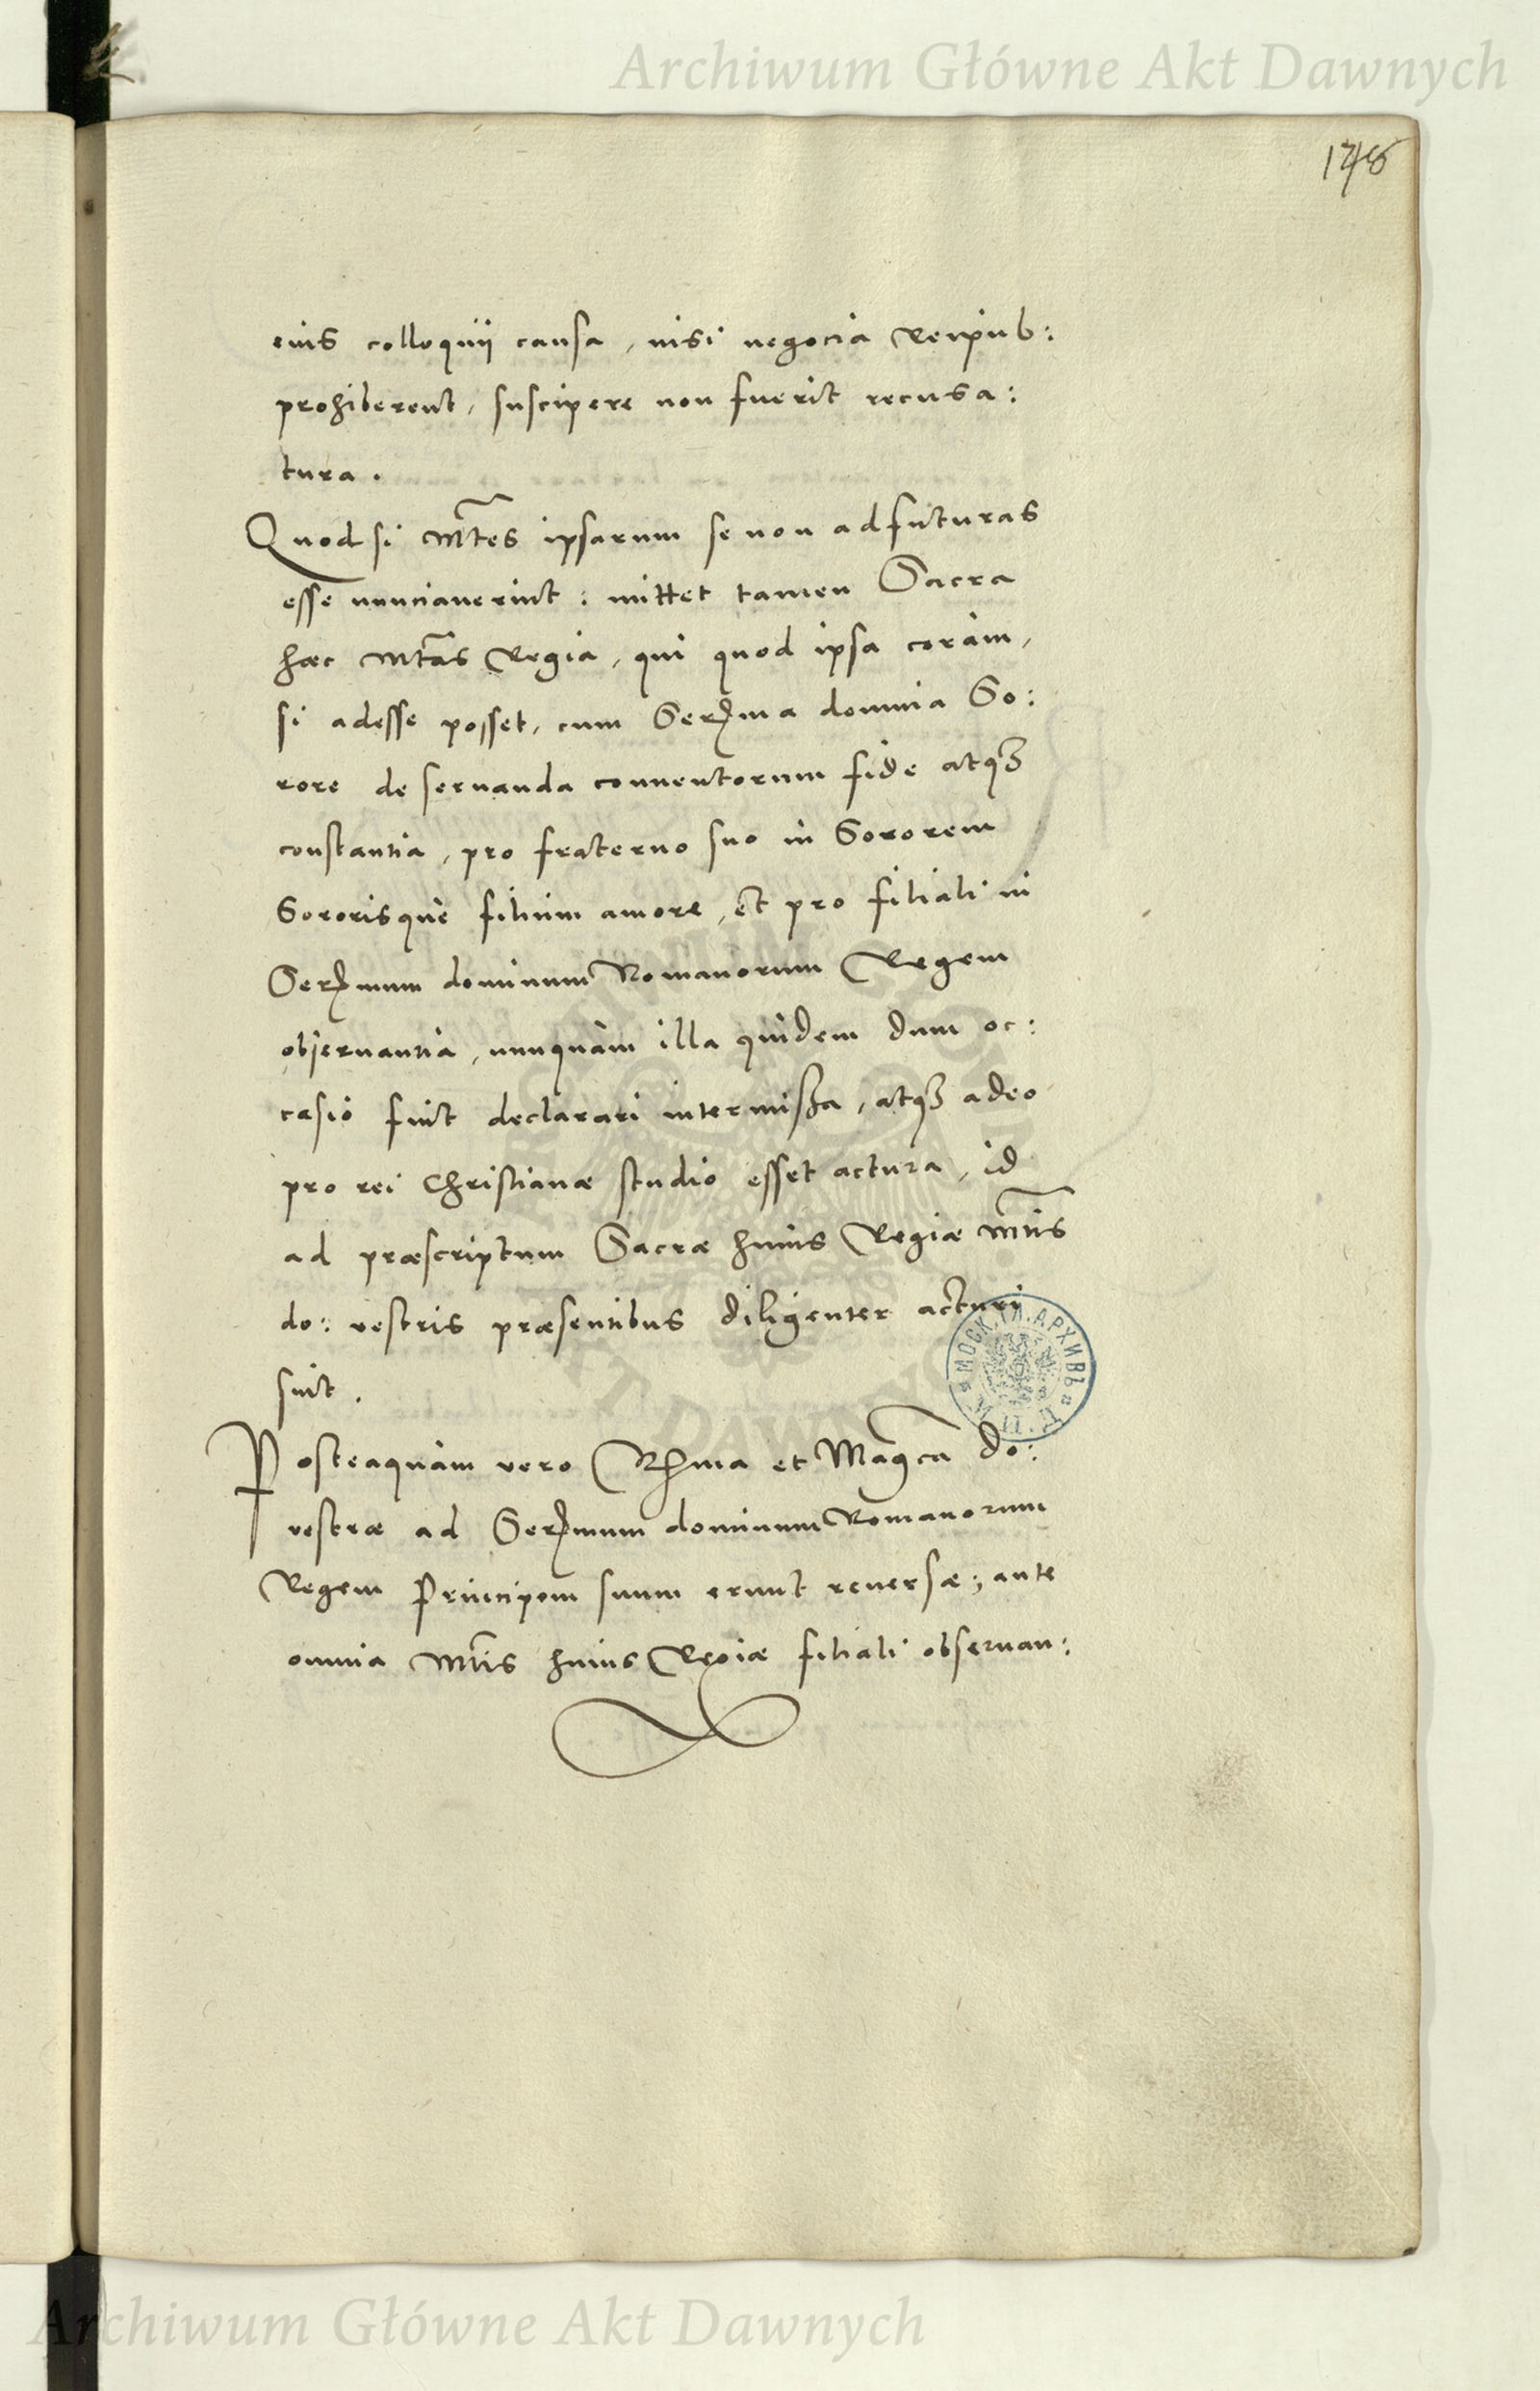 Archiwum Główne Akt Dawnych
eius colloquij causa, nisi negocia Reipub:
prohiberent, suscipere non fuerit recusa:
tura.
Quod si Mtes ipsarum se non adfuturas
esse nunciauerint: mittet tamen Sacra
hæc Mtas Regia, qui quod ipsa coràm,
si adesse posset, cum Serma domina So:
rore de seruanda conuentorum fide atq3
constantia, pro fraterno suo in Sororem
Sororisque filium amore, et pro filiali in
Sermum dominum Romanorum Regem
obseruantia, nunquàm illa quidem dum oc:
casio fuit declarari intermissa, atq3 adeo
pro rei Christianæ studio esset actura, id
ad præscriptum Sacræ huius Regiæ Mtis
do: vestris præsentibus diligenter acturi
sint.
Posteaquàm vero Rma et Magca do:
vestræ ad Sermum dominum Romanorum
Regem Principem suum erunt reuersæ; ante
omnia Mtis huius Regiæ filiali obseruan:
МОСК. ГЛ. АРХИВЪ
ARCHIWUM GŁÓWNE AKT DAWNYCH
Archiwum Główne Akt Dawnych